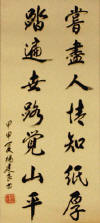 嘗盡人情知紙厚
踏遍世路覺山平
甲申夏楊建書